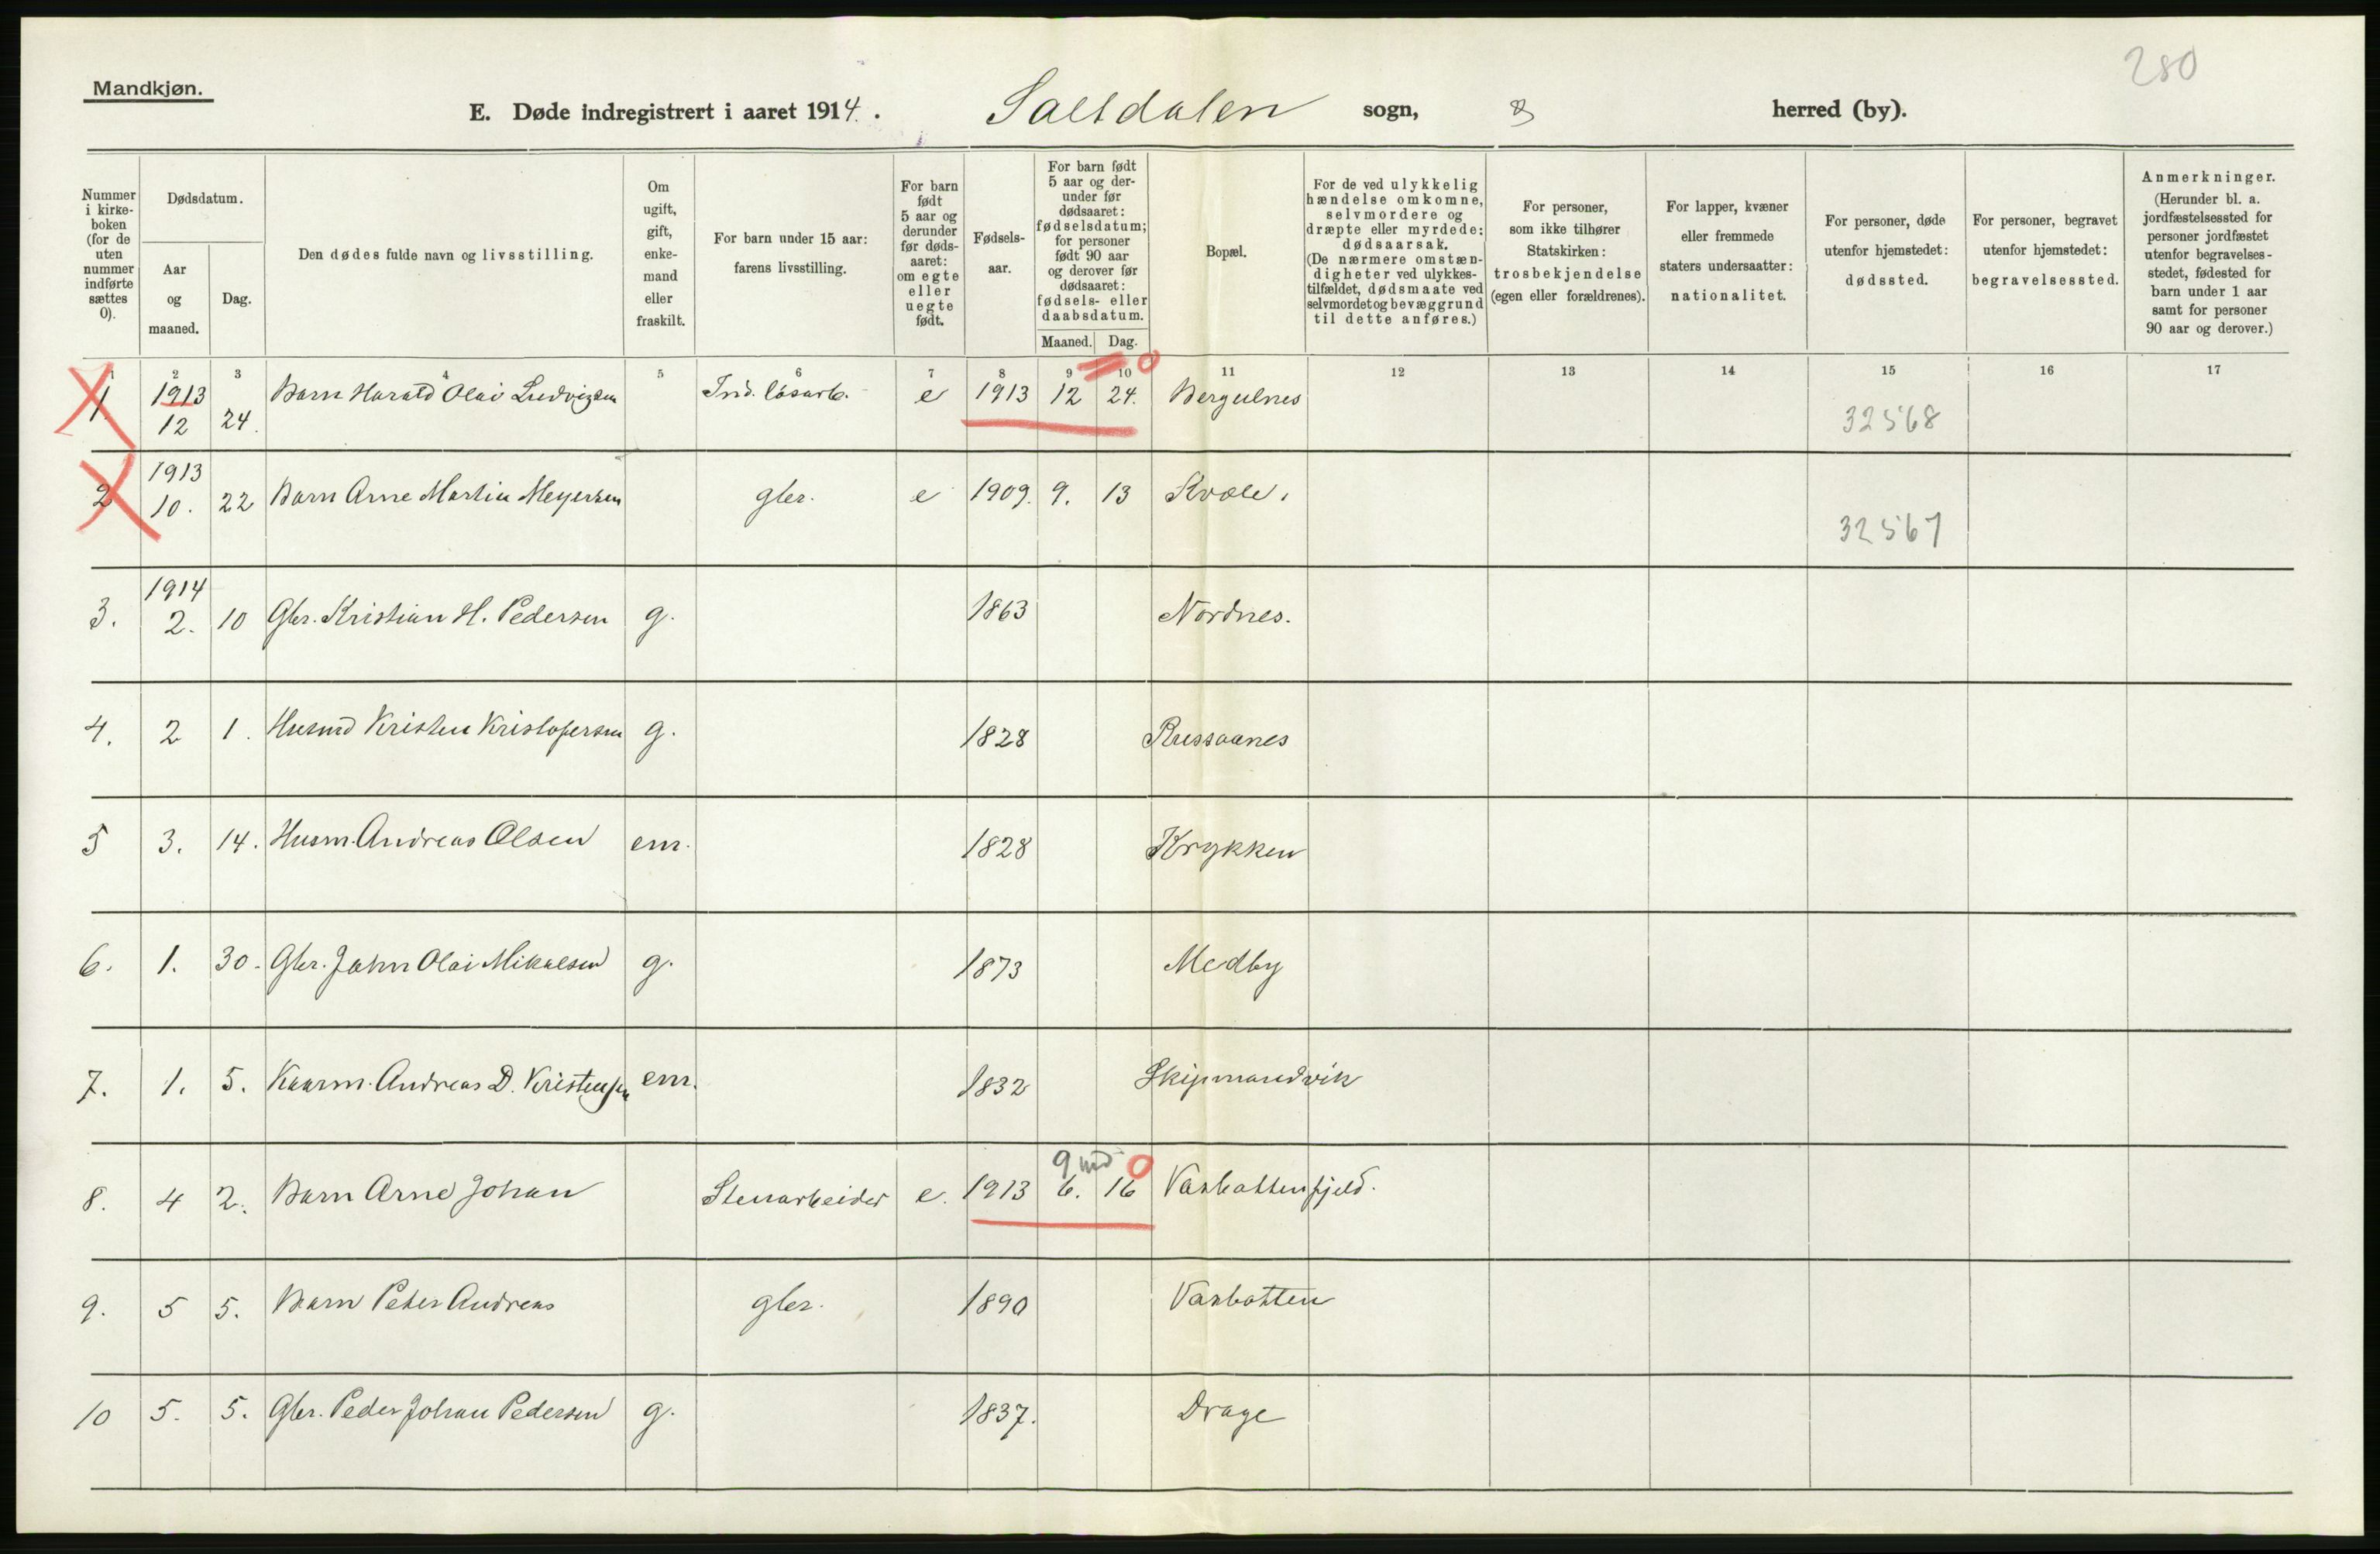 280
Mandkjøn.
E. Døde indregistrert i aaret 1914. Saltdalen sogn, herred (by).
Nummer i kirke-boken (for de uten nummer indførte sættes 0).
Dødsdatum.
Aar og maaned.
Dag.
Den dødes fulde navn og livsstilling.
Om ugift, gift, enke-mand eller fraskilt.
For barn under 15 aar: farens livsstilling.
For barn født 5 aar og derunder før døds-aaret: om egte eller uegte født.
Fødsels-aar.
For barn født 5 aar og der-under før dødsaaret: fødselsdatum; for personer født 90 aar og derover før dødsaaret: fødsels- eller daabsdatum.
Maaned. Dag.
Bopæl.
For de ved ulykkelig hændelse omkomne, selvmordere og dræpte eller myrdede: dødsaarsak. (De nærmere omstæn-digheter ved ulykkes-tilfældet, dødsmaate ved selvmordet og bevæggrund til dette anføres.)
For personer, som ikke tilhører Statskirken: trosbekjendelse (egen eller forældrenes).
For lapper, kvæner eller fremmede staters undersaatter: nationalitet.
For personer, døde utenfor hjemstedet: dødssted.
For personer, begravet utenfor hjemstedet: begravelsessted.
Anmerkninger. (Herunder bl. a. jordfæstelsessted for personer jordfæstet utenfor begravelses-stedet, fødested for barn under 1 aar samt for personer 90 aar og derover.)
1 2 3 4 5 6 7 8 9 10 11 12 13 14 15 16 17
1. 1913 12 24. Barn Harald Olai Ludvigsen Ind. løsarb. e 1913 12 24. Bergulnes 32568
2 1913 10. 22 Barn Arne Martin Meyersen gbr. e 1909. 9. 13 Kvæle. 32567
3. 1914 2. 10 Gbr. Kristian H. Pedersen g. 1863 Nordnes.
4. 2 1. Husmd Kristen Kristofersen g. 1828 Russaanes
5 3. 14. Husm. Andreas Olsen em. 1828 Krykken
6. 1. 30. Gbr. John Olai Mikalsen g. 1873 Medby
7. 1. 5. Kaarm. Andreas D. Kristensen em. 1832 Skipmandvik
9 md 0
8. 4 2. Barn Arne Johan Stenarbeider e. 1913 6. 16 Vasbottenfjeld.
9. 5 5. Barn Peter Andreas gbr. 1890 Vasbotten
10 5. 5. Gbr. Peder Johan Pedersen g. 1837. Drage